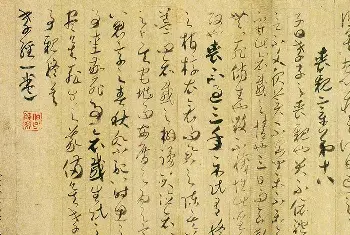 喪親章第十八
子曰孝子之喪親哭不偯禮
無容言不文服美不安聞樂不樂
食旨不甘此哀慼之情也三日而食教民
無以死傷生毀不滅性此聖人之
政也喪不過三年示民有終也為
之棺槨衣衾而舉之陳其簠
簋而哀慼之擗踊哭泣哀
以送之卜其宅兆而安措之為之宗廟以
鬼享之春秋祭祀以時思之
生事愛敬死事哀慼生民之
本盡矣死生之義備矣孝子
之事親終矣
孝經一卷